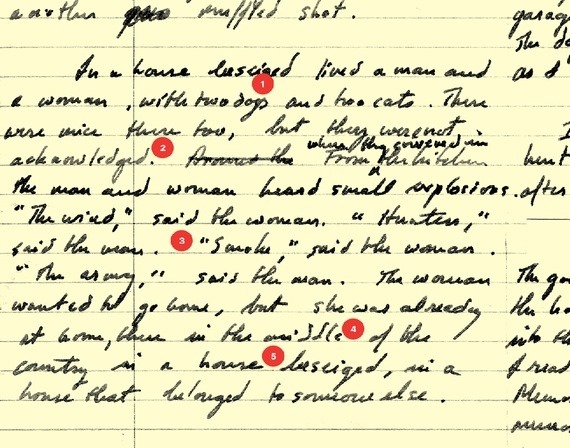 another muffled shot.
In a house beseiged lived a man and
1
a woman, with two dogs and two cats. There
were mice there too, but they were not
where they cowered in
acknowledged. 2 Around the From the kitchen
the man and woman heard small explosions.
"The wind," said the woman. "Hunters,"
said the man. 3 "Smoke," said the woman.
"The army," said the man. The woman
wanted to go home, but she was already
at home, there in the middle 4 of the
country in a house 5 beseiged, in a
house that belonged to someone else.
as I
after
The
the
I read